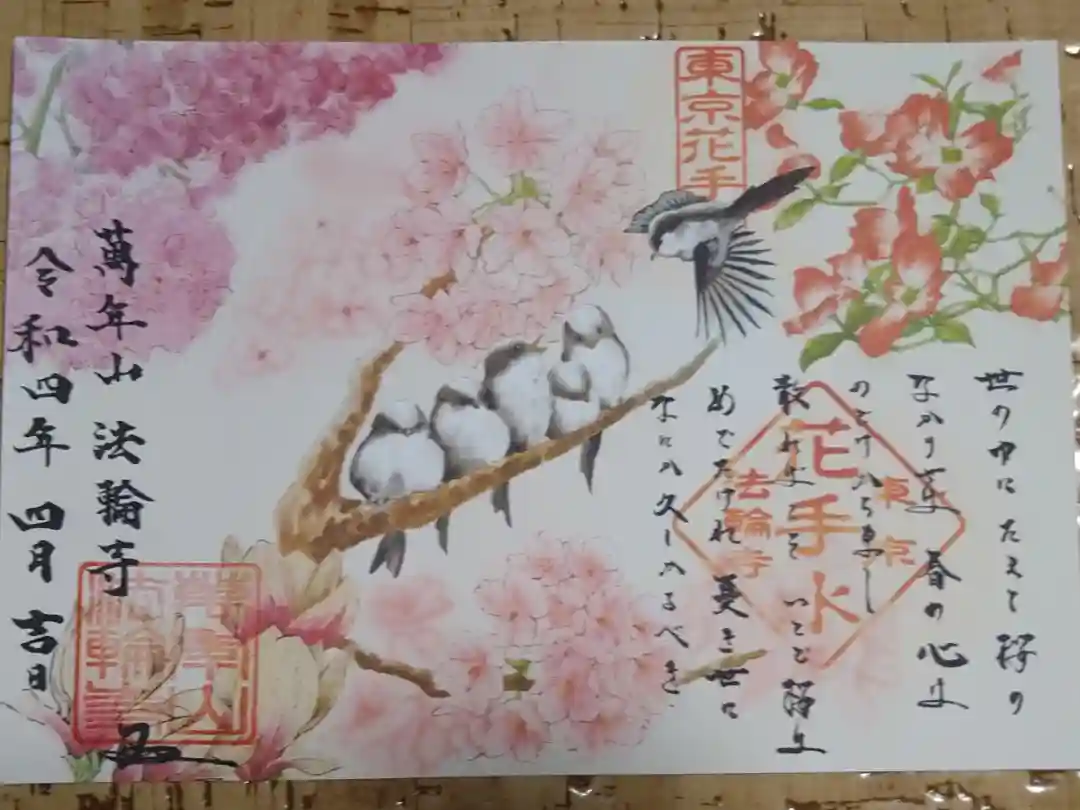 東京花手
世の中に たえて桜の
なかりせば 春の心は
のどけからまし
散ればこそ いとど桜は
めでたけれ 憂き世に
なにか久しかるべき
東京
花手水
法輪寺
萬年山 法輪寺
令和四年 四月 吉日